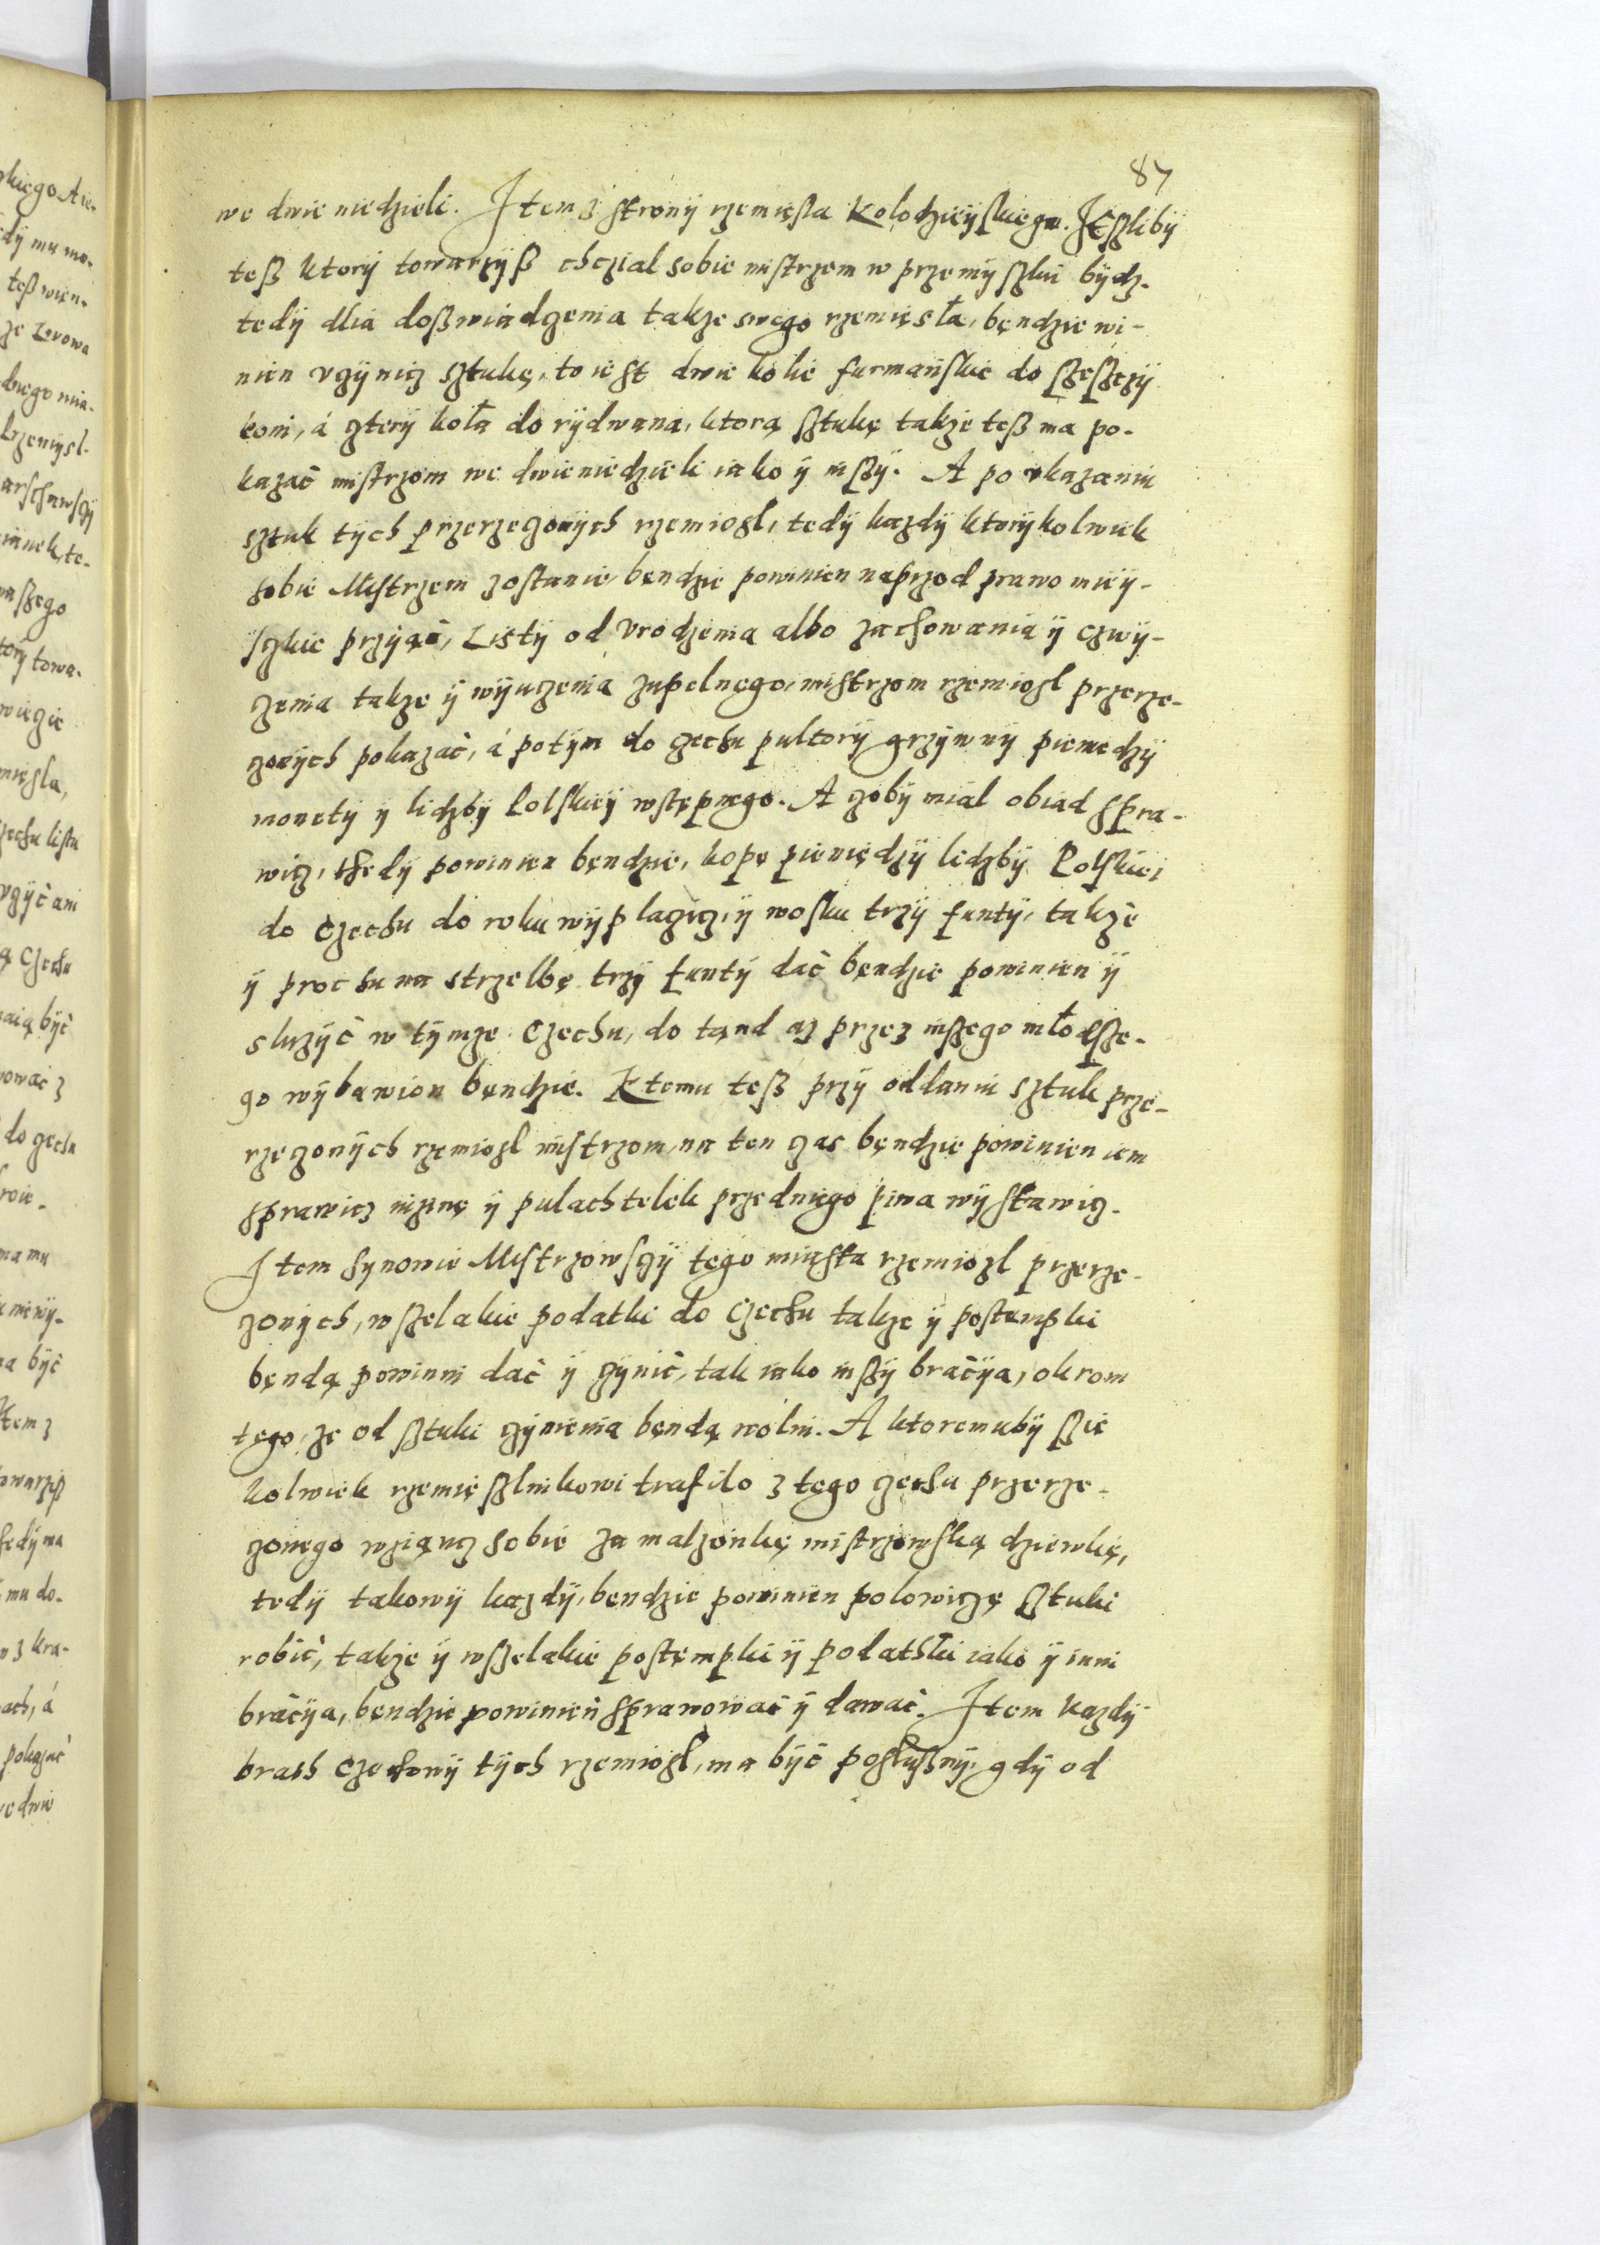 87
we dwie niedzieli. Item z strony rzemięsla Kolodzieyskiego. Jeszliby
teß ktory towarzyß chczial sobie mistrzem w przemyszlu bydz.
tedy dlia doßwiadczenia takze swego rzemięsła, bęndzie wi-
nien vczynicz sztukę, to iest dwie kolie furmańskie do szeszczy
koni, á cztery koła do rydwana, ktorą sztukę takze teß ma po-
kazać mistrzom we dwie niedzieli iako y inszy. A po vkazaniu
sztuk tych przerzeczonych rzemiosl, tedy kazdy ktorykolwiek
sobie Mistrzem zostanie bęndzie powinien naprzod prawo miey-
szkie przyąć, Listy od vrodzenia albo zachowania y czwy-
czenia takze y wyuczenia zupelnęgo, mistrzom rzemiosl przerze-
czonych pokazać, á potym do czechu pultory grzywny pieniedzy
monety y liczby Polskiey wstępnego. A czoby mial obiad spra-
wicz, thedy powinien bęndzie, kopę pieniędzy liczby Polskiei
do Czechu do roku wyplaczicz, y wosku trzy funty, takze
y prochu na strzelbę trzy funty dać bęndzie powinien y
sluzyć w tymze Czechu, do tąnd az przez inszego młodsze-
go wybawion bęndzie. K temu teß przy oddaniu sztuk prze-
rzeczonych rzemiosl mistrzom, na ten czas bęndzie powinien iem
sprawicz mznę y pulachtelek przedniego piwa wystawicz.
Item synowie Mistrzowsczy tego miasta rzemiosl przerze-
czonych, wszelakie podatki do Czechu takze y postempki
bęndą powinni dać y czynić, tak iako inszy braciya, okrom
tego, ze od sztuki czynienia bęndą wolni. A ktoremuby szie
kolwiek rzemięszlnikowi trafilo z tego czechu przerze-
czonego wziąncz sobie za malzonkę mistrzowską dziewkę,
tedy takowy kazdy, bęndzie powinien polowiczę sztuki
robić, takze y wszelakie postęmpki y podatski iako y inni
braciya, bęndzie powinień sprawować y dawać. Item kazdy
brath czechowy tych rzemiosl, ma być posłußny, gdy od